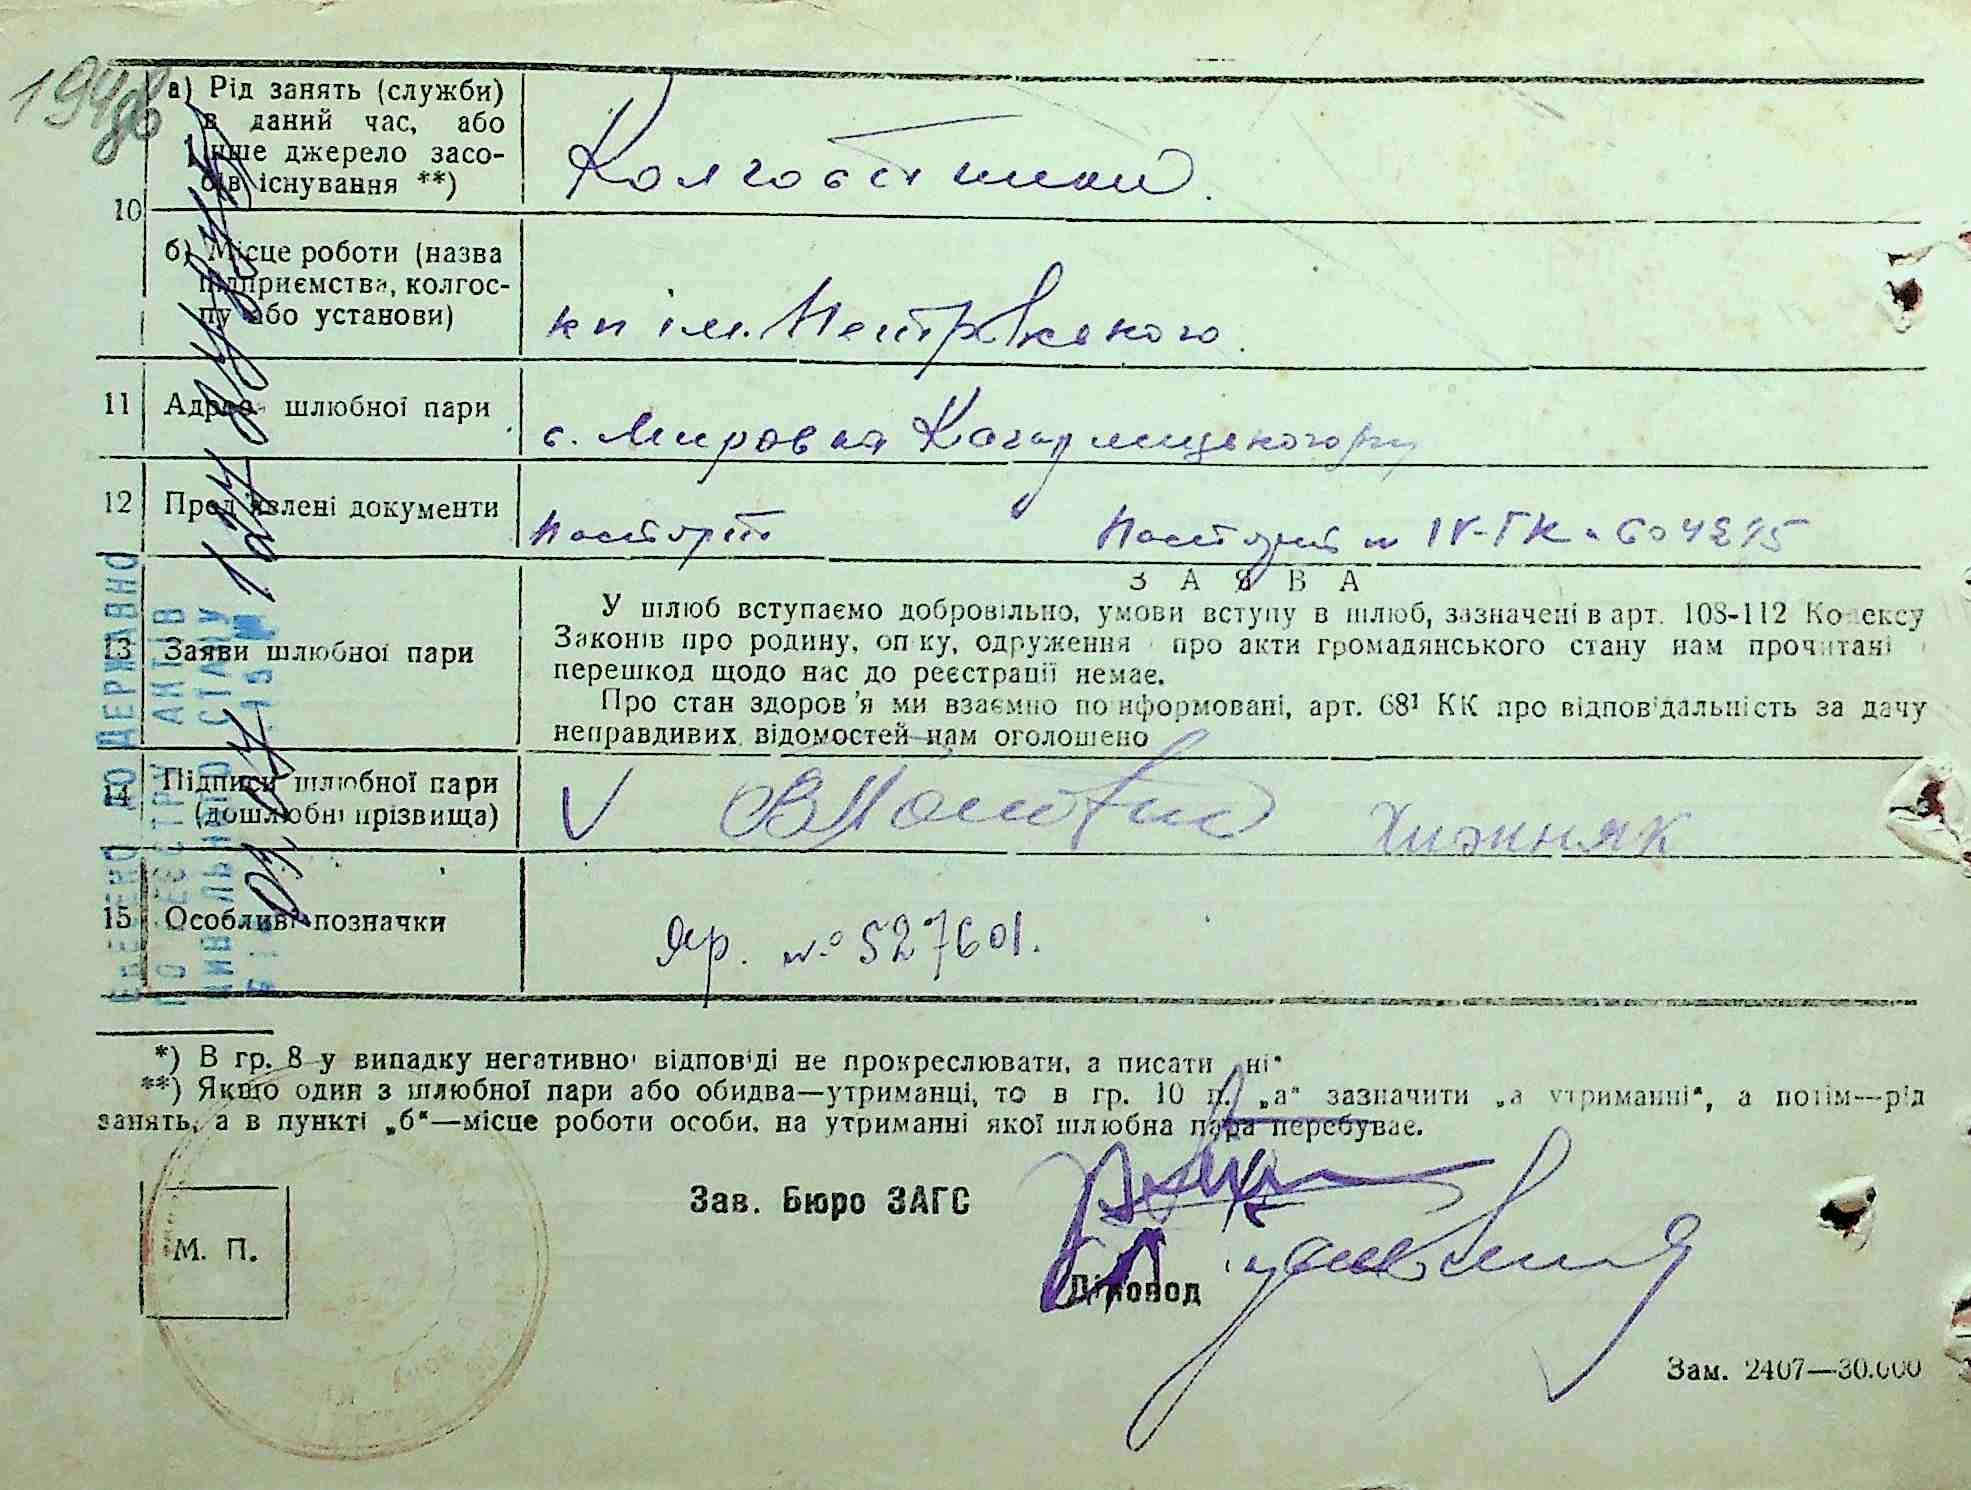 а) Рід занять (служби)
в даний час, або
інше джерело засо-
бів існування **)
Колгоспники.
10
б) Місце роботи (назва
підприємства, колгос-
пу або установи)
кп ім. Петровського.
11 Адреса шлюбної пари
с. Мировка Кагарлицького р-ну
12 Пред'явлені документи
Паспорт Паспорт № IV-ГК №
З А Я В А
У шлюб вступаємо добровільно, умови вступу в шлюб, зазначені в арт. 108-112 Кодексу
Законів про родину, опіку, одруження і про акти громадянського стану нам прочитані і
перешкод щодо нас до реєстрації немає.
13 Заяви шлюбної пари
Про стан здоров'я ми взаємно поінформовані, арт. 68¹ КК про відповідальність за дачу
неправдивих відомостей нам оголошено
14 Підписи шлюбної пари
(дошлюбні прізвища)
V Хижняк
15 Особливі позначки
яр. № 527601.
ВНЕСЕНО ДО ДЕРЖАВНО
ГО РЕЄСТРУ АКТІВ
ЦИВІЛЬНОГО СТАНУ
*) В гр. 8 у випадку негативної відповіді не прокреслювати, а писати „ні“
**) Якщо один з шлюбної пари або обидва—утриманці, то в гр. 10 п. „а“ зазначити „на утриманні“, а потім—рід
занять, а в пункті „б“—місце роботи особи, на утриманні якої шлюбна пара перебуває.
Зав. Бюро ЗАГС
М. П.
Діловод
Зам. 2407—30.000